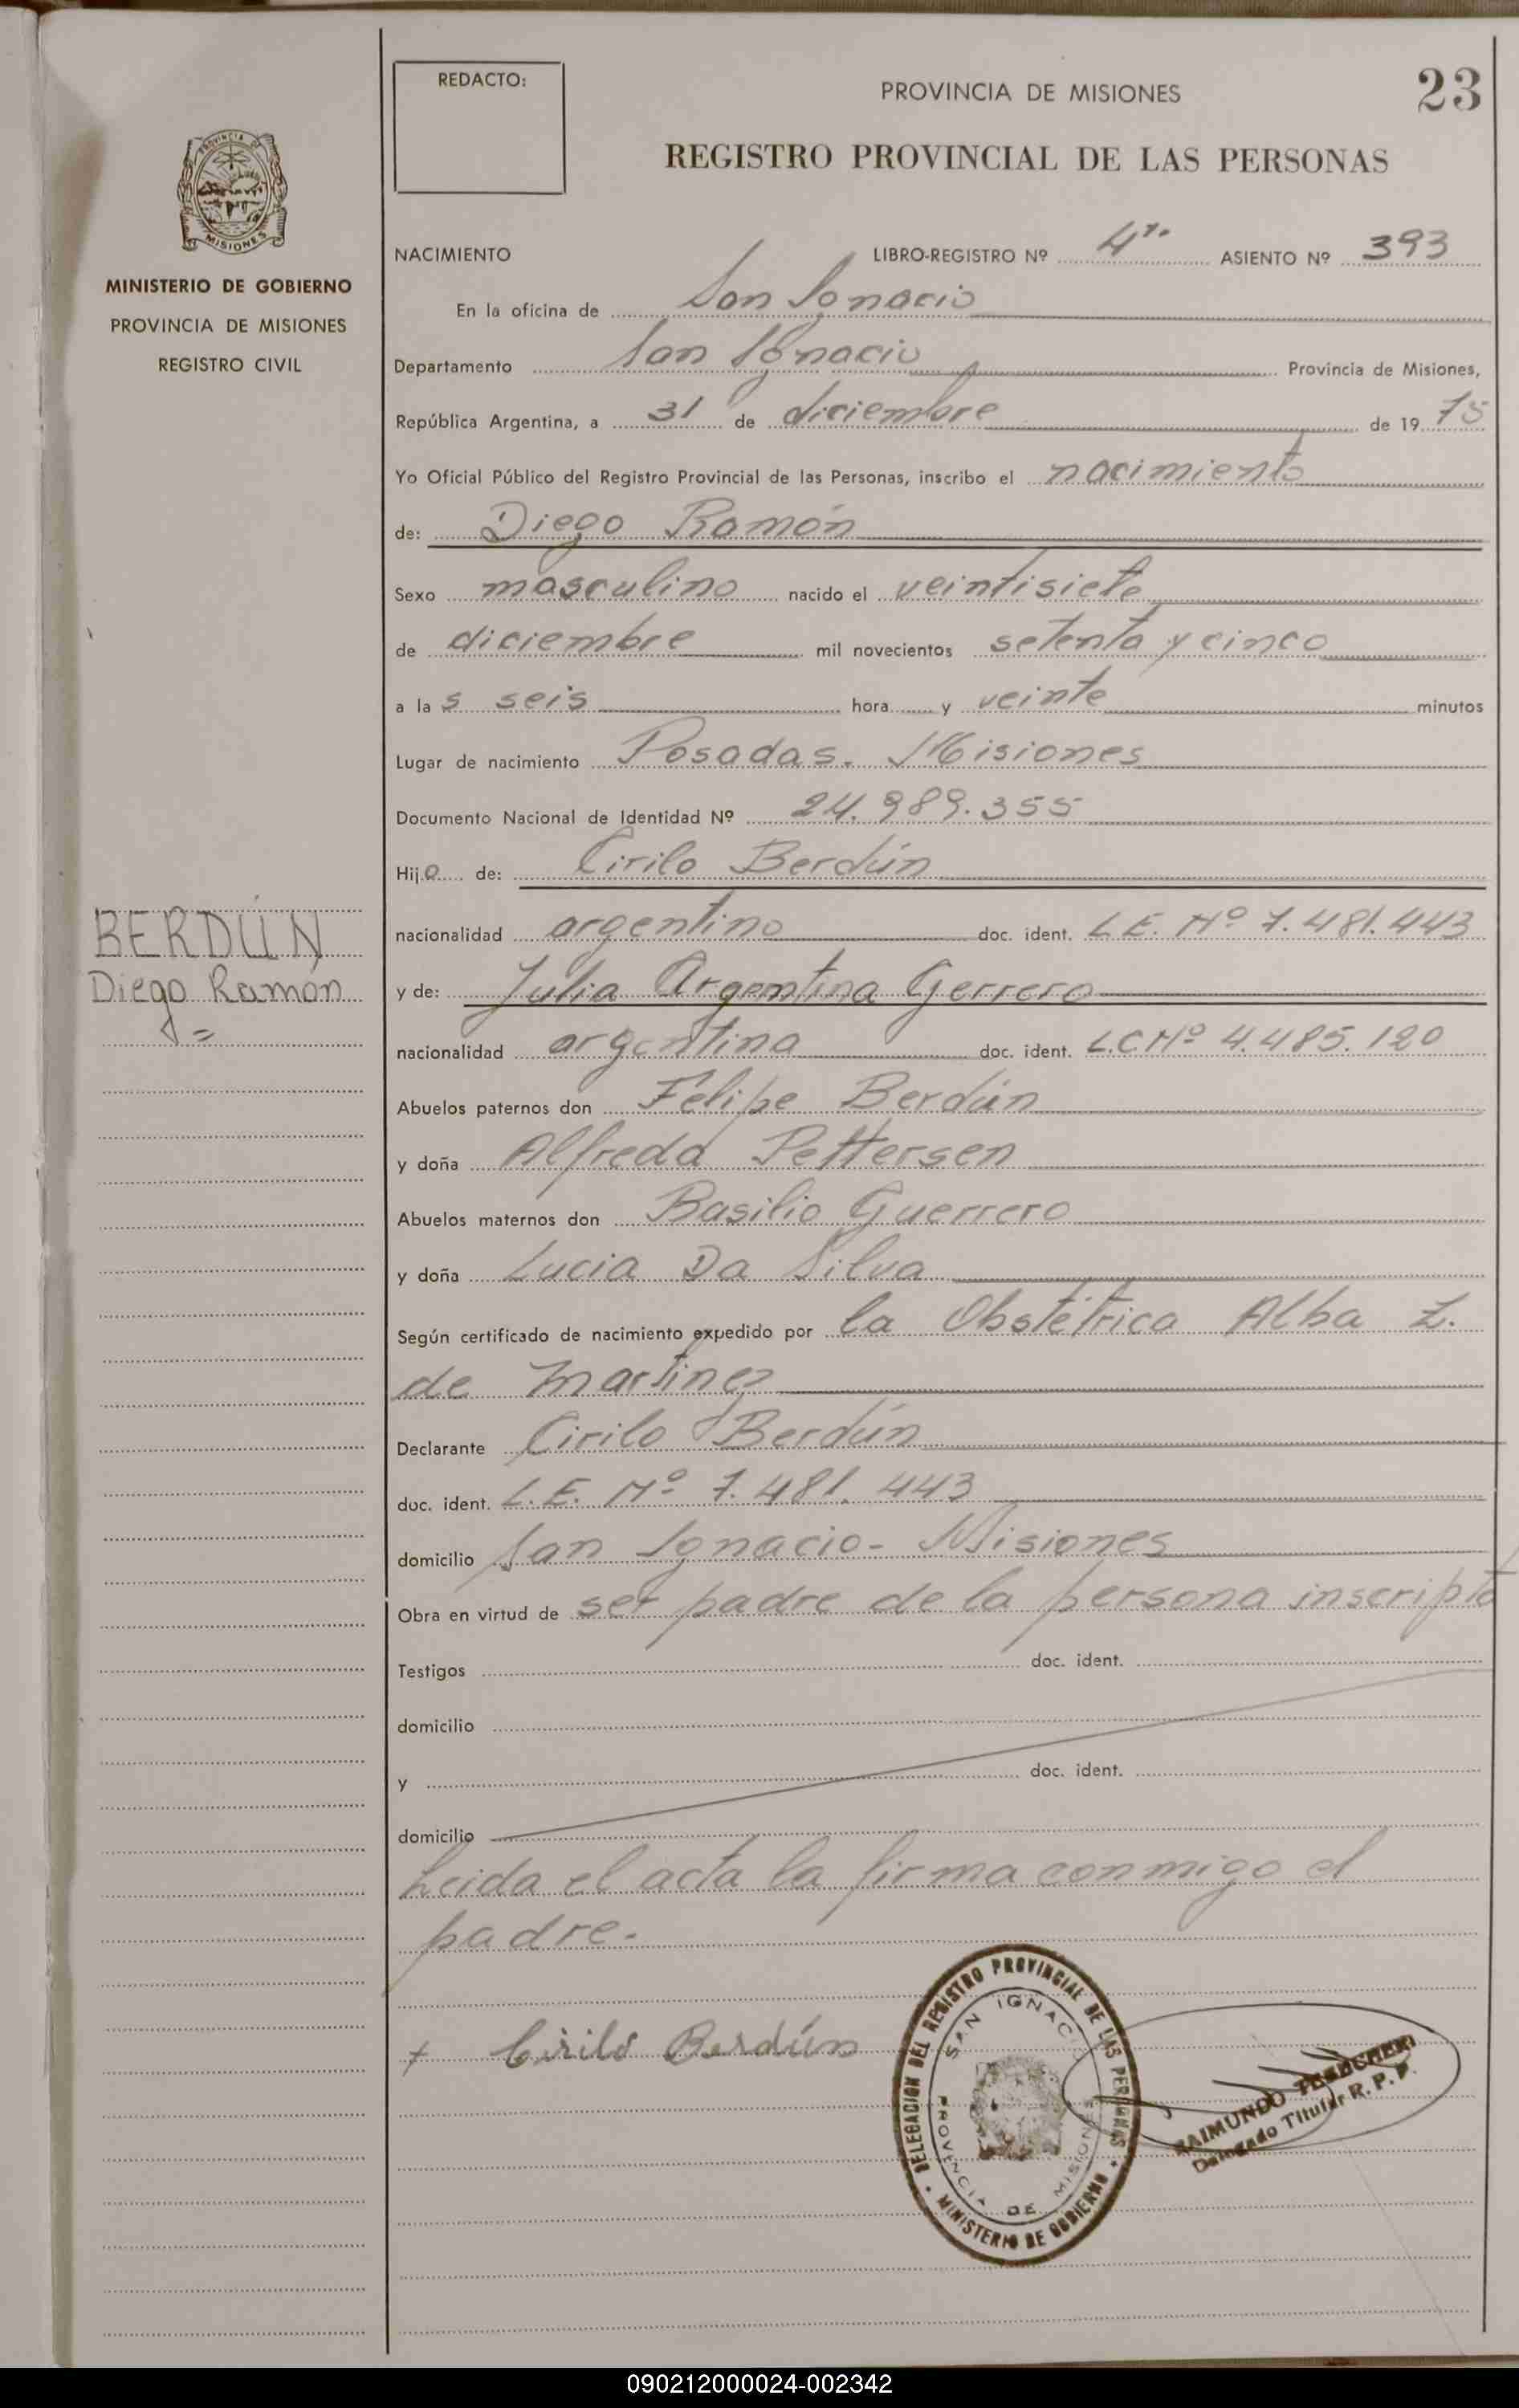 REDACTO:
PROVINCIA DE MISIONES
23
REGISTRO PROVINCIAL DE LAS PERSONAS
PROVINCIA DE
MISIONES
MINISTERIO DE GOBIERNO
PROVINCIA DE MISIONES
REGISTRO CIVIL
NACIMIENTO LIBRO-REGISTRO Nº 4to. ASIENTO Nº 393
En la oficina de San Ignacio
Departamento San Ignacio Provincia de Misiones,
República Argentina, a 31 de diciembre de 19 75
Yo Oficial Público del Registro Provincial de las Personas, inscribo el nacimiento
de: Diego Ramón
Sexo masculino nacido el veintisiete
de diciembre mil novecientos setenta y cinco
a la s seis hora y veinte minutos
Lugar de nacimiento Posadas. Misiones
Documento Nacional de Identidad Nº 24.989.355
Hijo de: Cirilo Berdún
BERDÚN
Diego Ramón
nacionalidad argentino doc. ident. L.E. Nº 7.481.443
y de: Julia Argentina Gerrero
nacionalidad argentina doc. ident. L.C Nº 4.485.120
Abuelos paternos don Felipe Berdún
y doña Alfreda Pettersen
Abuelos maternos don Basilio Guerrero
y doña Lucia Da Silva
Según certificado de nacimiento expedido por la Obstétrica Alba Z.
de Martinez
Declarante Cirilo Berdún
doc. ident. L.E. Nº 7.481.443
domicilio San Ignacio - Misiones
Obra en virtud de ser padre de la persona inscripta
Testigos doc. ident.
domicilio
y doc. ident.
domicilio
Leida el acta la firma conmigo el
padre.
+ Cirilo Berdún
DELEGACION DEL REGISTRO PROVINCIAL DE LAS PERSONAS
SAN IGNACIO
PROVINCIA DE MISIONES
MINISTERIO DE GOBIERNO
RAIMUNDO
Delegado Titular R. P. P.
090212000024-002342